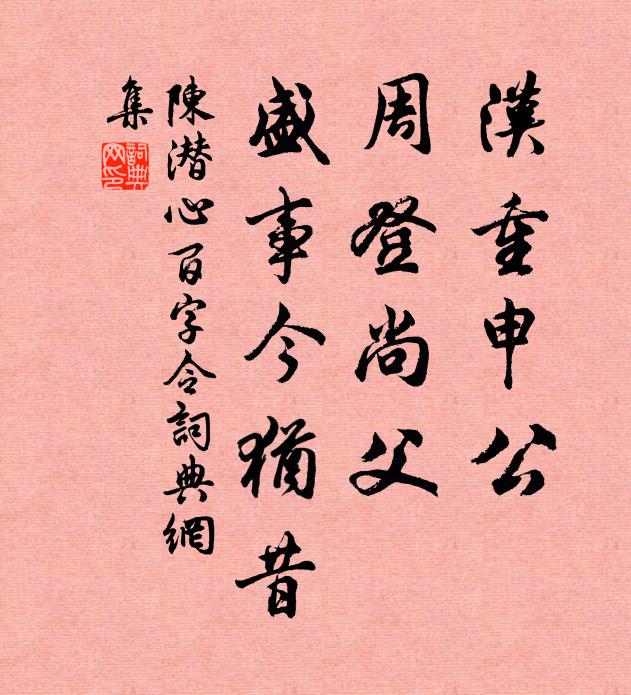 漢重申公
周登尚父
盛事今猶昔
陳潜心百字令詞典網
集
詞典
网印